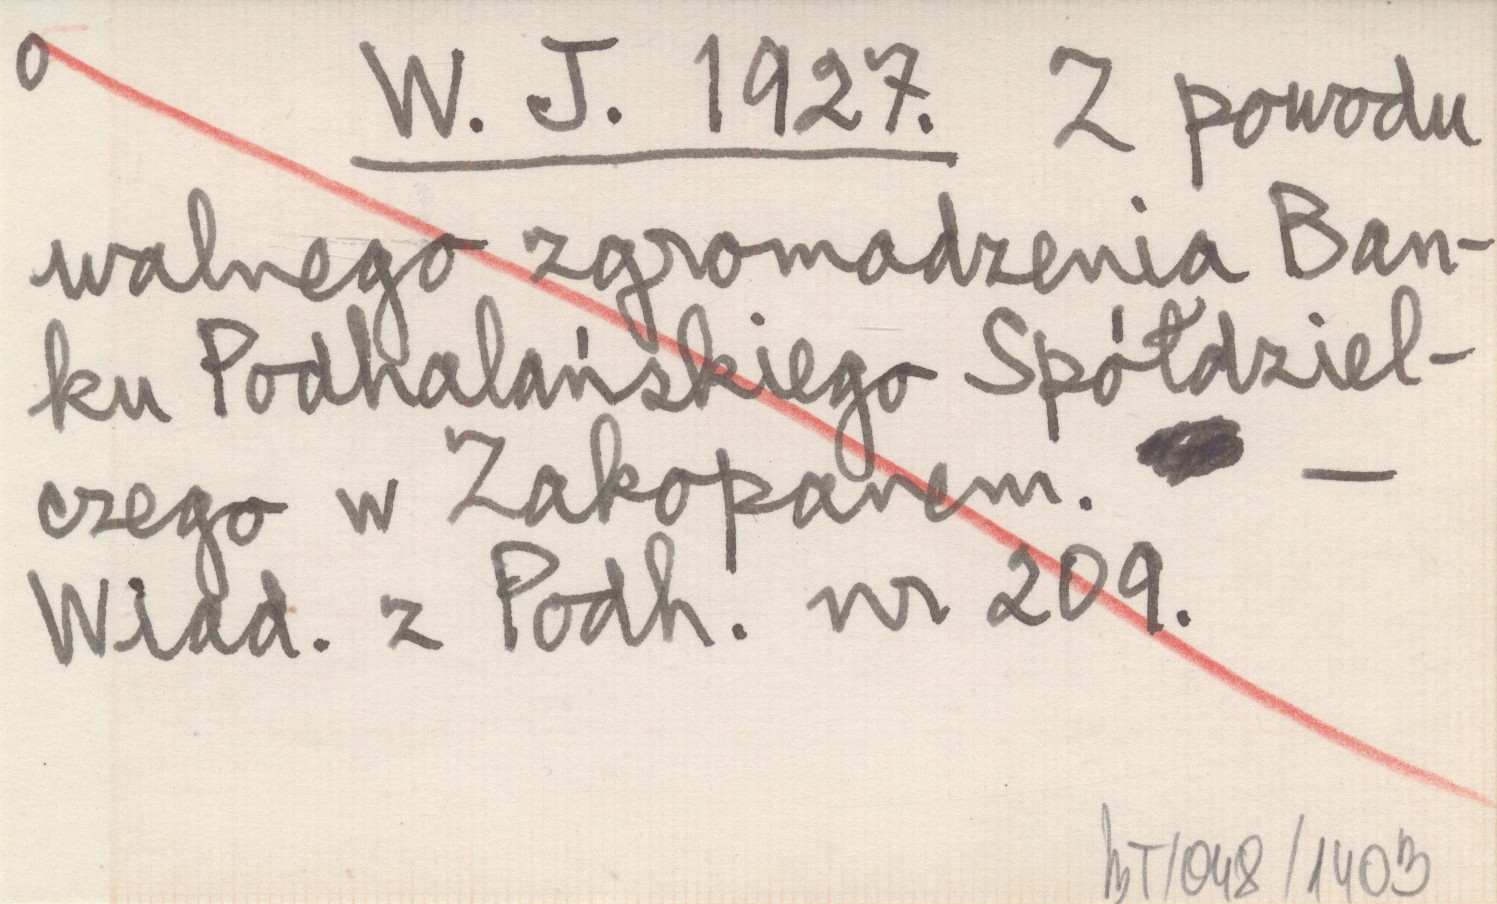 o W. J. 1927. Z powodu
walnego zgromadzenia Ban-
ku Podhalańskiego Spółdziel-
czego w Zakopanem. —
Wiad. z Podh. nr 209.
/048/1403